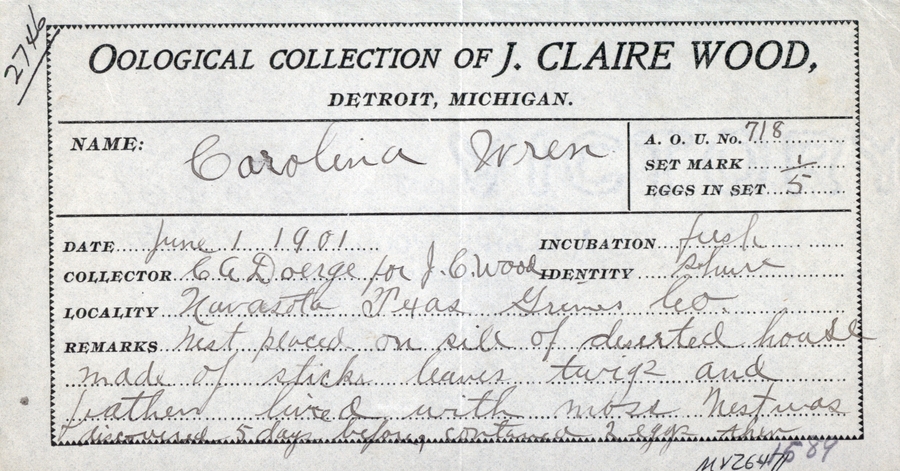 2746
OOLOGICAL COLLECTION OF J. CLAIRE WOOD,
DETROIT, MICHIGAN.
NAME: Carolina Wren
A. O. U. No. 718
SET MARK 1
EGGS IN SET 5
DATE June 1 1901
INCUBATION fresh
COLLECTOR C A Doerge for J. C. Wood
IDENTITY
LOCALITY Navasota Texas Grimes Co.
REMARKS Nest placed on sill of deserted house
made of sticks leaves twigs and
feathers lined with moss Nest was
discovered 5 days before, contained 2 eggs then
1589